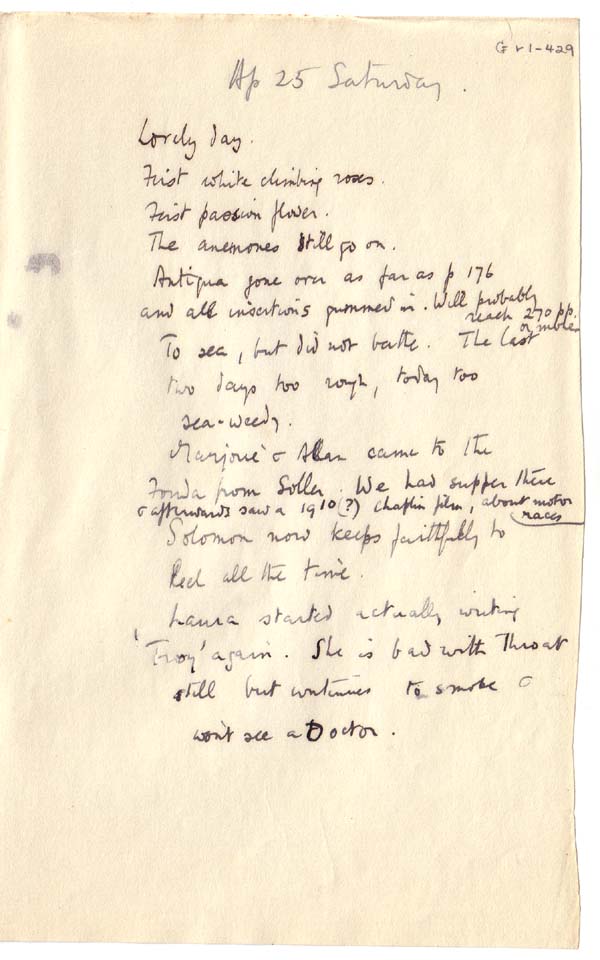 G v1-429
Ap 25 Saturday.
Lovely day.
First white climbing roses.
First passion flower.
The anemones still go on.
Antigua gone over as far as p 176
and all insertions gummed in. Will probably
reach 270 pp.
or more
To sea, but did not bathe. The last
two days too rough, today too
sea-weedy.
Marjorie & Alan came to the
Fonda from Soller. We had supper there
& afterwards saw a 1910(?) Chaplin film, about motor
races
Solomon now keeps faithfully to
heel all the time.
Laura started actually writing
'Troy' again. She is bad with throat
still but continues to smoke &
won't see a Doctor.